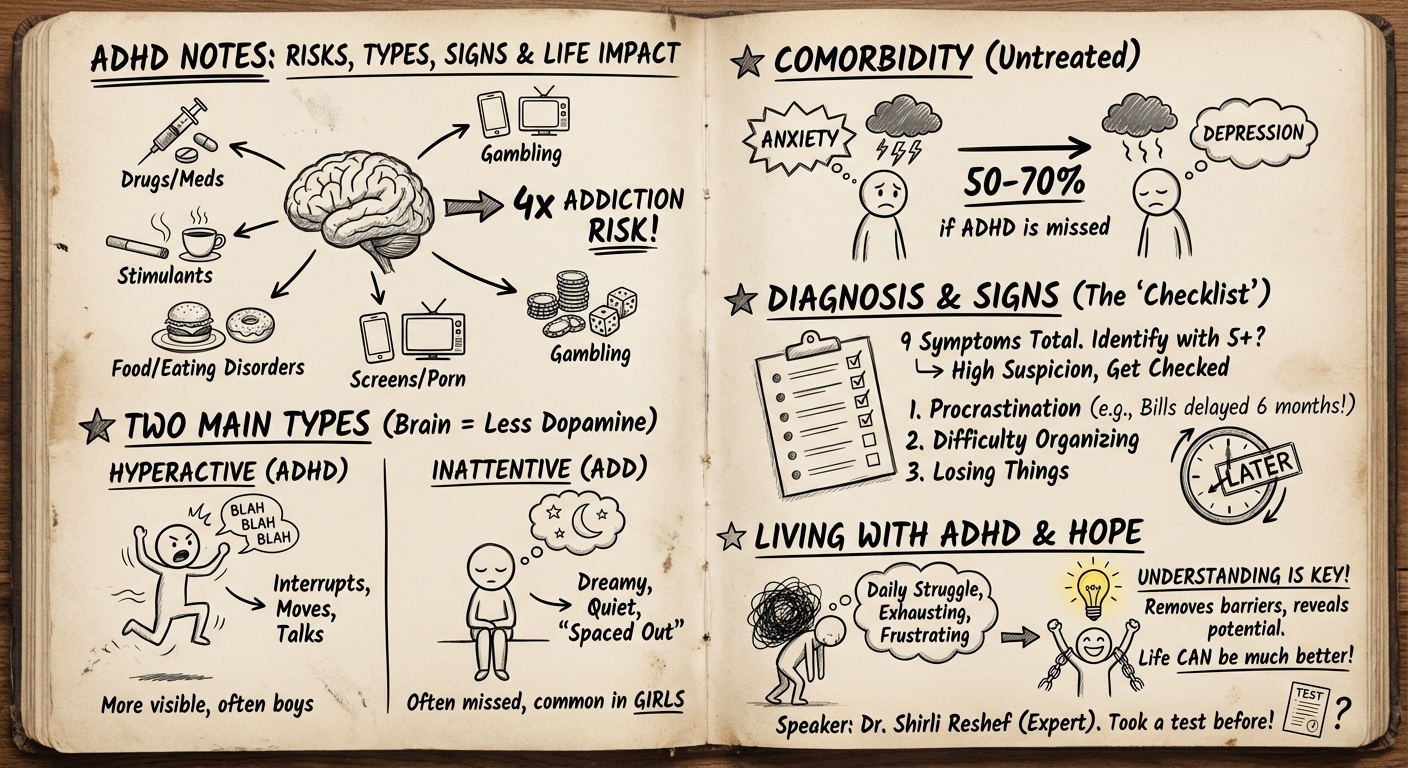 ADHD NOTES: RISKS, TYPES, SIGNS & LIFE IMPACT
Drugs/Meds
Gambling
4x ADDICTION
RISK!
Stimulants
Food/Eating Disorders
Screens/Porn
Gambling
TWO MAIN TYPES (Brain = Less Dopamine)
HYPERACTIVE (ADHD)
BLAH
BLAH
BLAH
Interrupts,
Moves,
Talks
More visible, often boys
INATTENTIVE (ADD)
Dreamy,
Quiet,
“Spaced Out”
Often missed, common in GIRLS
COMORBIDITY (Untreated)
ANXIETY
50-70%
if ADHD is missed
DEPRESSION
DIAGNOSIS & SIGNS (The ‘Checklist’)
9 Symptoms Total. Identify with 5+?
High Suspicion, Get Checked
1. Procrastination (e.g., Bills delayed 6 months!)
2. Difficulty Organizing
3. Losing Things
LATER
LIVING WITH ADHD & HOPE
Daily Struggle,
Exhausting,
Frustrating
UNDERSTANDING IS KEY!
Removes barriers, reveals
potential.
Life CAN be much better!
Speaker: Dr. Shirli Reshef (Expert). Took a test before!
TEST
?